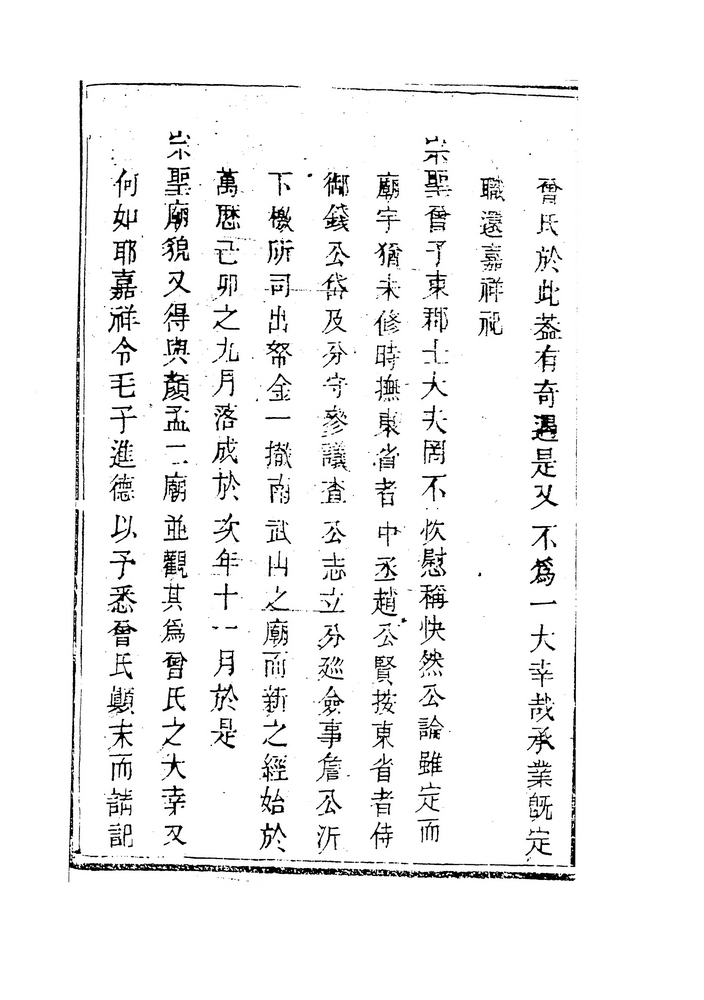 曾氏於此蓋有奇遇是又不爲一大幸哉承業既定
職還嘉祥祀
宗聖曾子東郡士大夫罔不忺慰稱快然公論雖定而
廟宇猶未修時撫東省者中丞趙公賢按東省者侍
御錢公岱及分守參議查公志立分巡僉事詹公沂
下檄所司出帑金一撤南武山之廟而新之經始於
萬曆己卯之九月落成於次年十一月於是
宗聖廟貌又得與顏孟二廟並觀其爲曾氏之大幸又
何如耶嘉祥令毛子進德以予悉曾氏顚末而請記